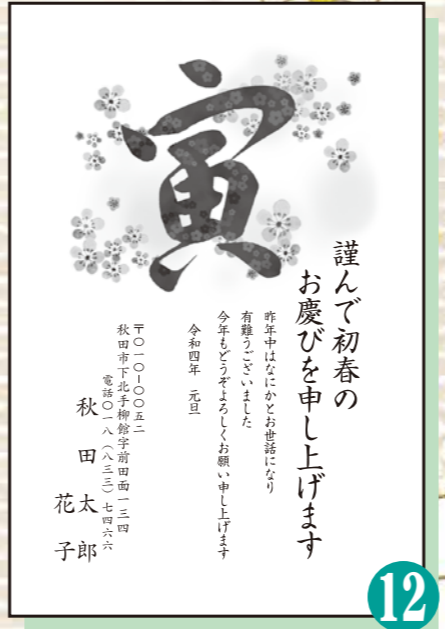 寅
謹んで初春の
お慶びを申し上げます
昨年中はなにかとお世話になり
有難うございました
今年もどうぞよろしくお願い申し上げます
令和四年　元旦
〒〇一〇-〇〇五二
秋田市下北手柳館字前田面一三四
電話〇一八（八三三）七四六六
秋田太郎
花子
12